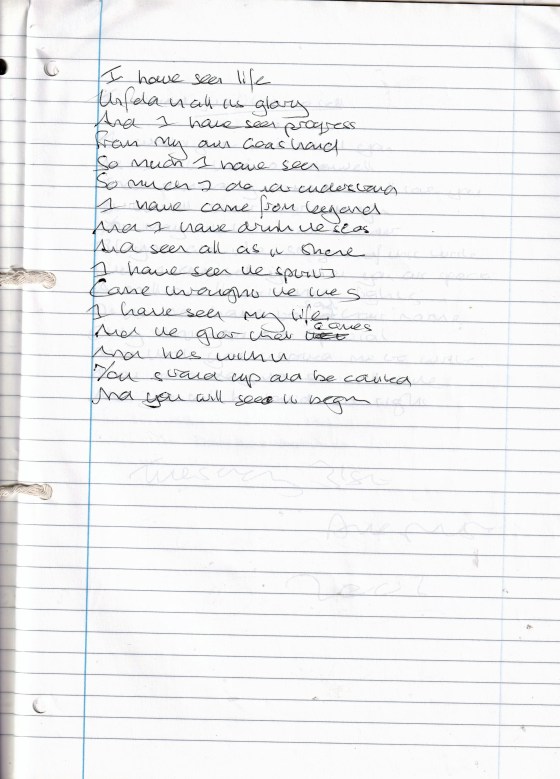 I have seen life
Unfold in all its glory
And I have seen progress
From my own
So much I have seen
So much I do not understand
I have come from beyond
And I have drunk the seas
And seen all as it
I have seen the spirits
Came through the
I have seen my life
And the that leaves
And lies within
You stand up and be counted
And you will see it begin
Tuesday 31st